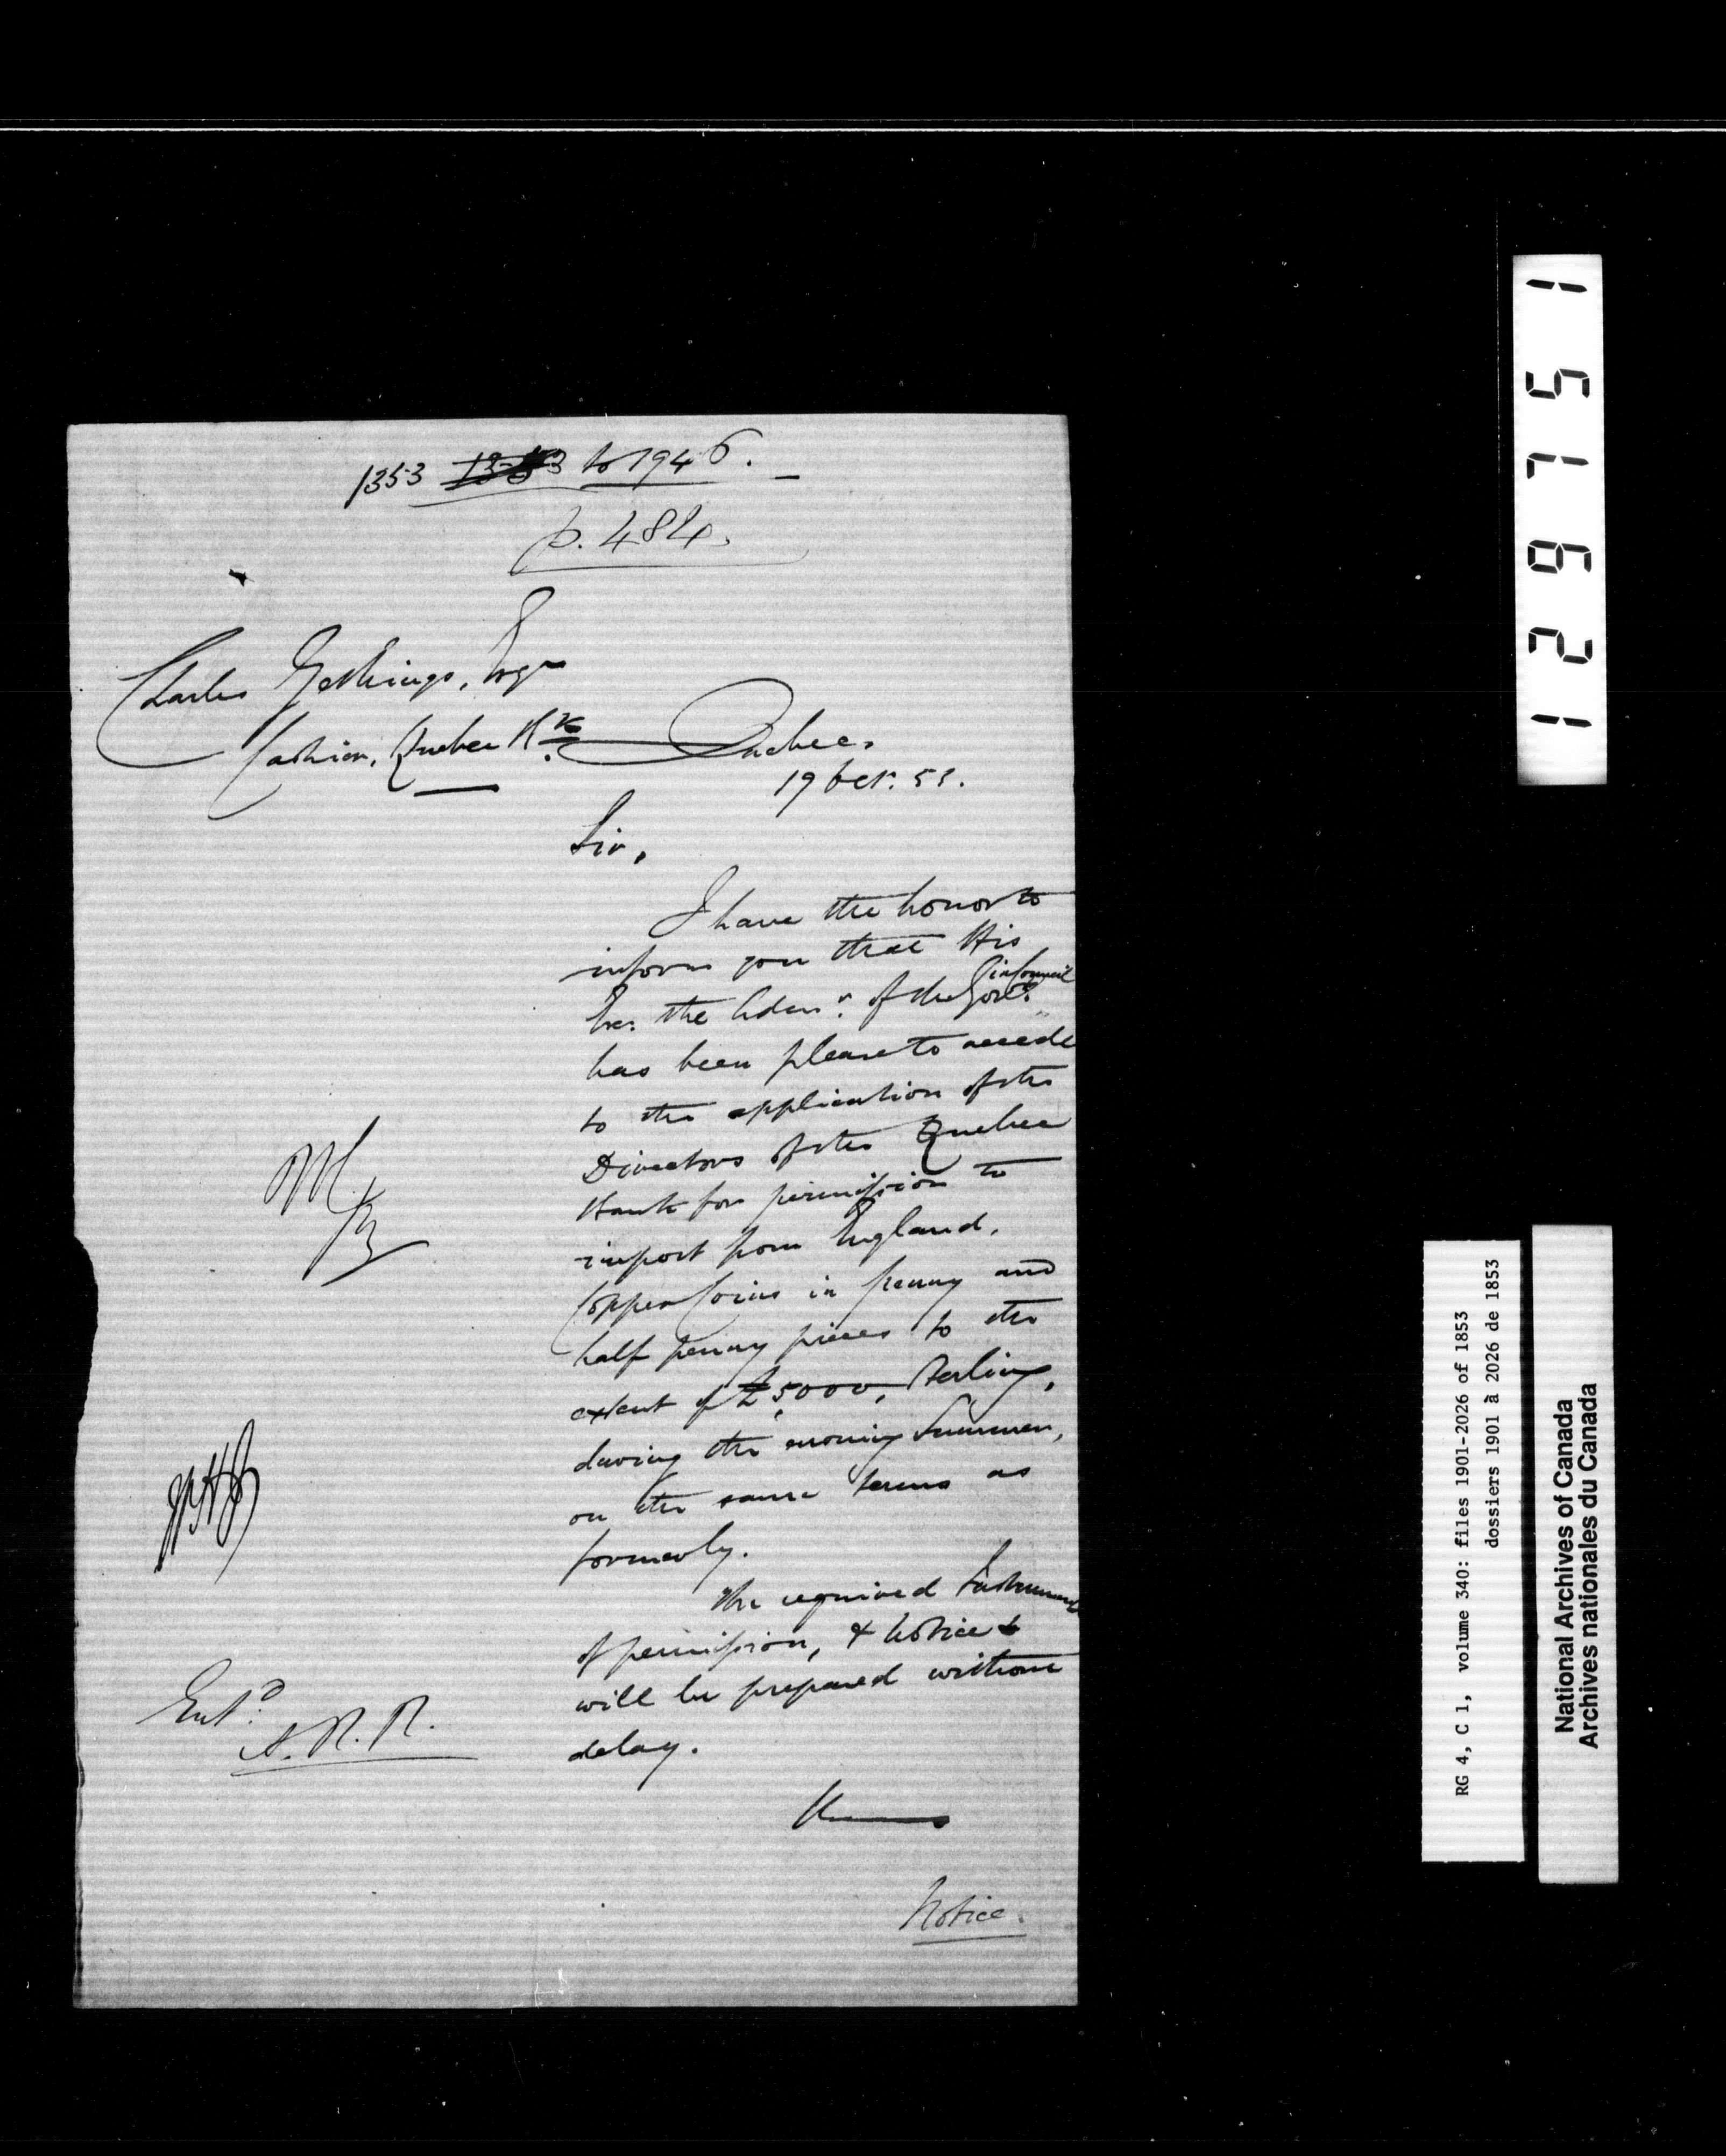 1353 1353 to 1946.
p. 484.
Charles Gethings, Esqr
Cashier, Quebec Bk.
Quebec,
19 Oct. 53.
Sir,
I have the honor to
inform you that His
Exc. the Admr. of the Govt. in Council
has been please to accede
to the application of the
Directors of the Quebec
Bank for permission to
import from England,
Copper Coins in penny and
half penny pieces to the
extent of £5,000, Sterling,
during the ensuing Summer,
on the same terms as
formerly.
The required Instrument
of permission, & Notice
will be prepared without
delay.
Notice.
Entd.
A. R. R.
129751
RG 4, C 1, volume 340: files 1901-2026 of 1853
dossiers 1901 à 2026 de 1853
National Archives of Canada
Archives nationales du Canada